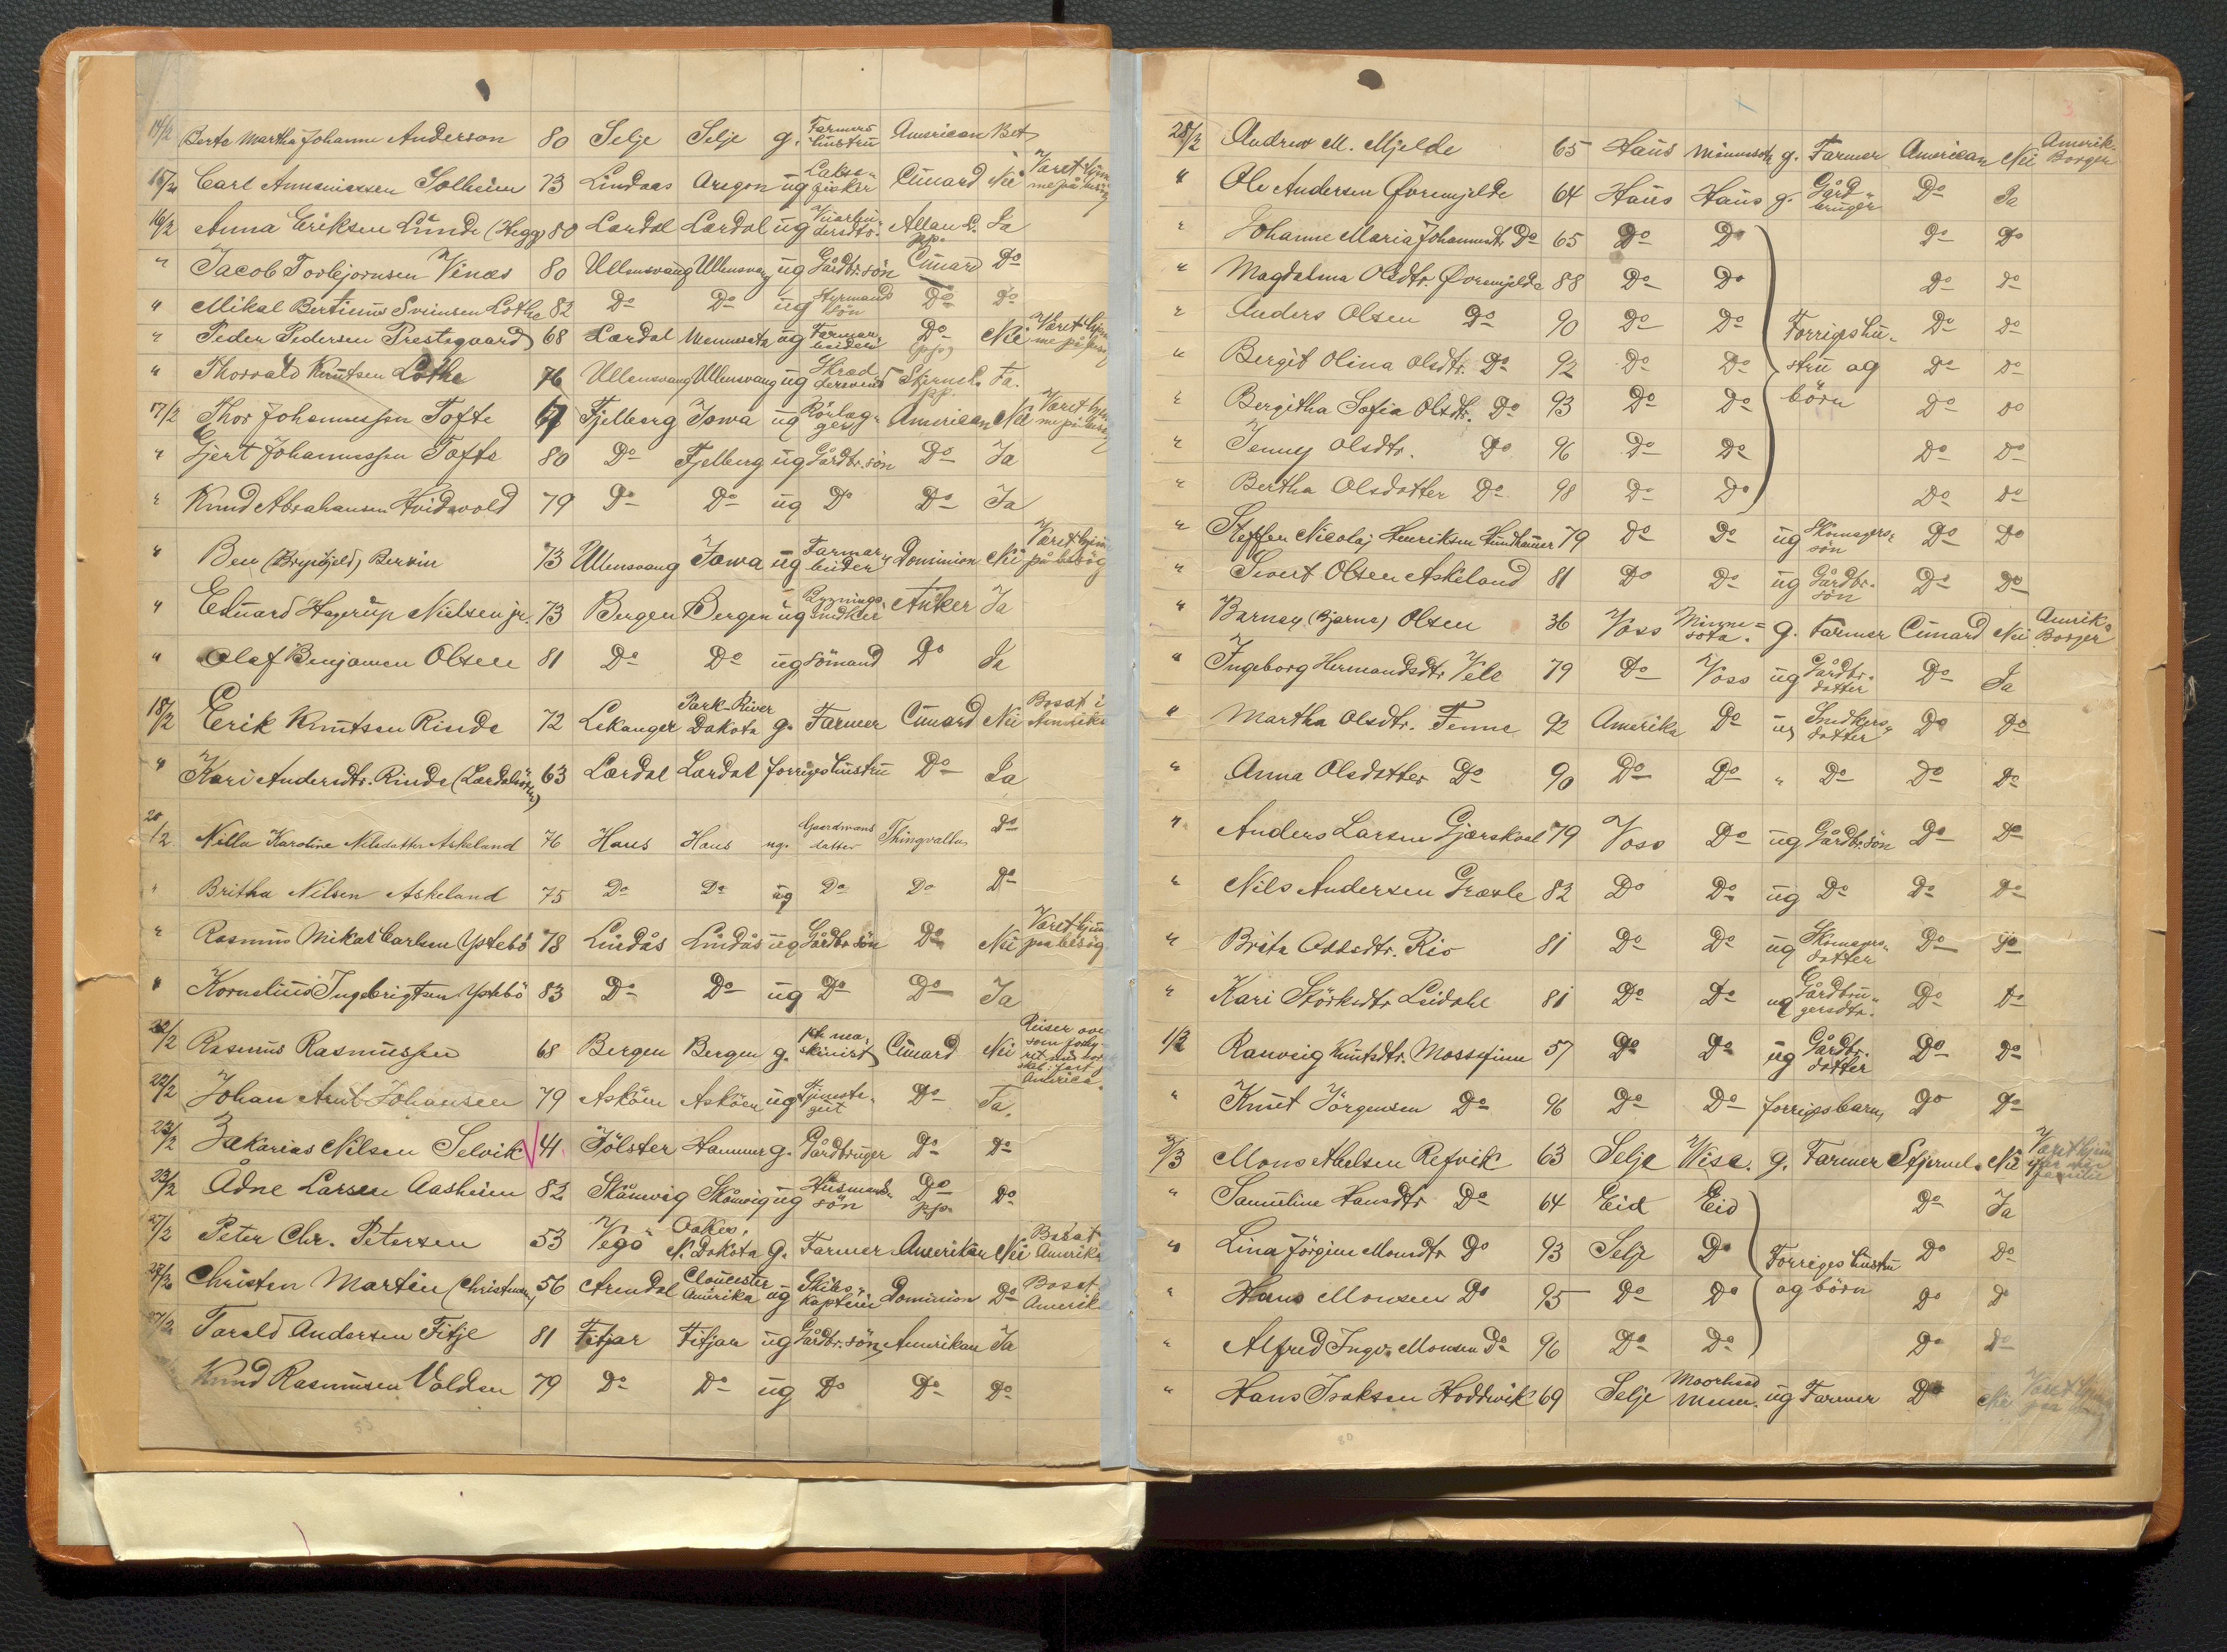 14/2 Berte Martha Johanne Anderson 80 Selje Selje g. Farmers hustru American Bet
15/2 Carl Annaniassen Solheim 73 Lindaas Oregon ug Lakse- fisker Cunard Nei Været hjem- me på besøg
16/2 Anna Eriksen Lunde (Hegg) 80 Lærdal Lærdal ug dersdtr. Allan L. pp. Ja
" Jacob Torbjørnsen Vines 80 Ullensvang Ullensvang ug Gårdbr. søn Cunard Do
" Mikal Bertinus Svinsen Lothe 82 Do Do ug Styrmands søn Do Do
" Peder Pedersen Prestegaard 68 Lærdal Mennesota ug Farmar- beider Do (pp) Nei Været hjem- me på besøg
" Thorvald Knutsen Lothe 76 Ullensvang Ullensvang ug Skræd- dersvend Stjernel. pp. Ja.
17/2 Thor Johannessen Tofte 67 Fjelberg Iowa ug Rørlæg- ger American Nei Været hjem- me på besøg
" Gjert Johannessen Tofte 80 Do Fjelberg ug Gårdbr. søn Do Ja
" Knud Abrahamsen Hvidevold 79 Do Do ug Do Do Ja
" Ben (Brynhjeld) Bersin 73 Ullensvang Iowa ug Farmar- beider Dominion Nei Været hjem på besøg
" Eduard Hagerup Nielsen jr. 73 Bergen Bergen ug Bygnings- snedker Anker Ja
" Olaf Benjamen Olsen 81 Do Do ug sømand Do Ja
18/2 Eerik Knutsen Rinde 72 Lekanger Park-River Dakota g. Farmer Cunard Nei Bosat i Amerika
" Kari Andersdtr. Rinde (Lærdalsøren) 63 Lærdal Lærdal forriges hustru Do Ja
20/2 Nilla Karoline Nilsdatter Askeland 76 Haus Haus ug. Gaardmans datter Thingvalla Do
" Britha Nilsen Askeland 75 Do Do ug Do Do Do
" Rasmus Mikal Carlsen Ystebø 78 Lindås Lindås ug Gårdbr. søn Do Nei Været hjem paa besøg
" Kornelius Ingebrigtsen Ystebø 83 Do Do ug Do Do Ja
22/2 Rasmus Rasmussen 68 Bergen Bergen g. ma- skinist Cunard Nei Reiser over som America
22/2 Johan Arnt Johansen 79 Askøen Askøen ug Tjeneste- gut Do Ja.
23/2 Zakarias Nilsen Selvik 41 Jølster Hammer g. Gårdbruger Do Do
23/2 Ådne Larsen Aasheim 82 Skånevig Skånevig ug Husmands- søn Do pp. Do
27/2 Peter Chr. Petersen 53 Vegø Oakes, N. Dakota g. Farmer Amerikan Nei Bosat Amerika
27/2 Christen Martin (Christensen) 56 Arendal Gloucester Amerika ug Skibs- kaptein Dominion Do Bosat Amerika
27/2 Tarald Andersen Fitje 81 Fitjar Fitjar ug Gårdbr. søn Amerikan Ja
Knud Rasmusen Volden 79 Do Do ug Do Do Do
53
3
28/2 Andrew M. Mjelde 65 Haus Minnesota g. Farmer American Nei Amerik. Borger
" Ole Andersen Øvremjelde 64 Haus Haus g. Gård- bruger Do Ja
" Johanne Maria Johannesdtr. Do 65 Do Do Do Do
" Magdalena Olsdtr. Øvremjelde 88 Do Do Do Do
" Anders Olsen Do 90 Do Do Forriges hu- Do Do
" Bergit Olina Olsdtr. Do 92 Do Do stru og Do Do
" Bergitha Sofia Olsdtr. Do 93 Do Do børn Do Do
" Jenny Olsdtr. Do 96 Do Do Do Do
" Bertha Olsdatter Do 98 Do Do Do Do
" Steffen Nicolaj Henriksen Hundhammer 79 Do Do ug Skomagers- søn Do Do
" Sivert Olsen Askeland 81 Do Do ug Gårdbr. søn Do Do
" Barney (Bjarne) Olsen 36 Voss Minne- sota. g. Farmer Cunard Nei Amrik. Borger
" Ingeborg Hermandsdtr. Vele 79 Do Voss ug Gårdbr. datter Do Ja
" Martha Olsdtr. Fenne 92 Amerika Do ug Snedkers- datter Do Do
" Anna Olsdatter Do 90 Do Do " Do Do Do
" Anders Larsen Gjerskvol 79 Voss Do ug Gårdbr. søn Do Do
" Nils Andersen Græsle 82 Do Do ug Do Do Do
" Brita Oddsdtr. Rio 81 Do Do ug Skomagers- datter Do Do
" Kari Størksdtr. Leidahl 81 Do Do ug Gårdbru- gersdtr. Do Do
1/3 Ranveig Knutsdtr. Mossefinn 57 Do Do ug Gårdbr. datter Do Do
" Knut Jörgensen Do 96 Do Do forriges barn Do Do
2/3 Mons Abelsen Refvik 63 Selje Wisc. g. Farmer Stjernel. Nei Været hjem
" Samuline Hansdtr. Do 64 Eid Eid Do Ja
" Lina Jörgine Monsdtr. Do 93 Selje Do Forriges hustru Do Do
" Hans Monsen Do 95 Do Do og børn Do Do
" Alfred Ingv. Monsen Do 96 Do Do Do Do
" Hans Isaksen Hoddevik 69 Selje Moorhead Minn. ug Farmer Do Nei Været hjem
80